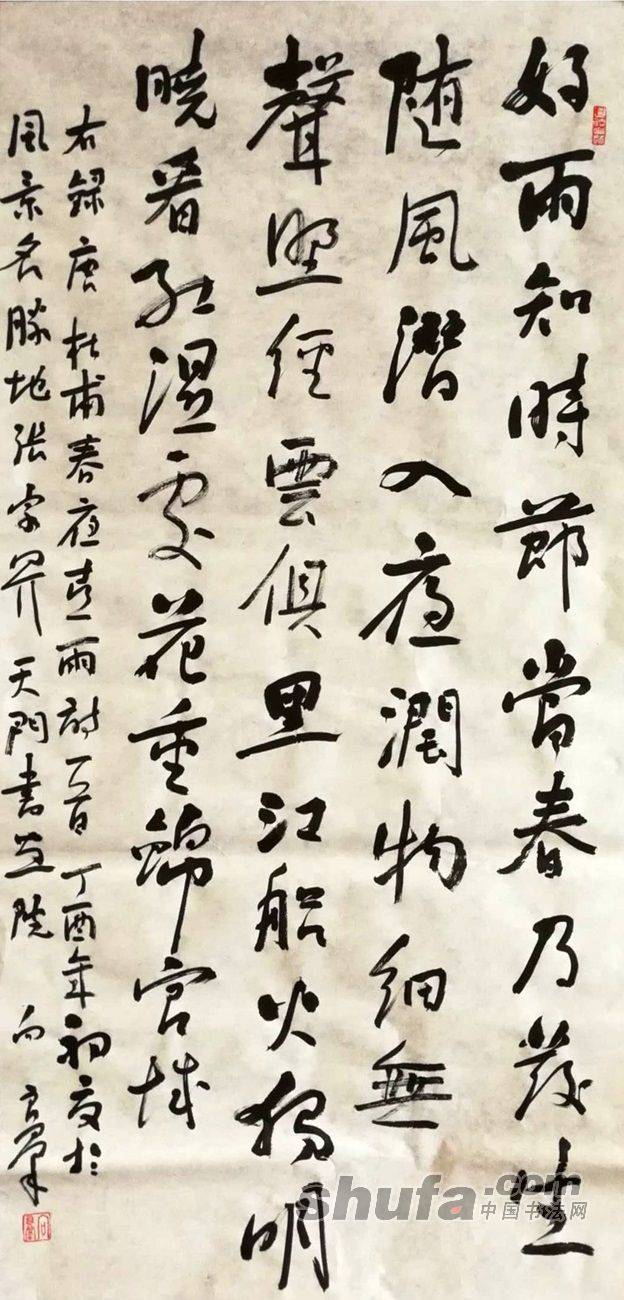 好雨知時節當春乃發生
随風潛入夜潤物細無
聲野徑雲俱黑江船火獨明
曉看紅濕處花重錦官城
右録唐杜甫春夜喜雨詩一首丁酉年初夏於
風景名勝地張家界天門書画院 向
shufa.com
中国书法网